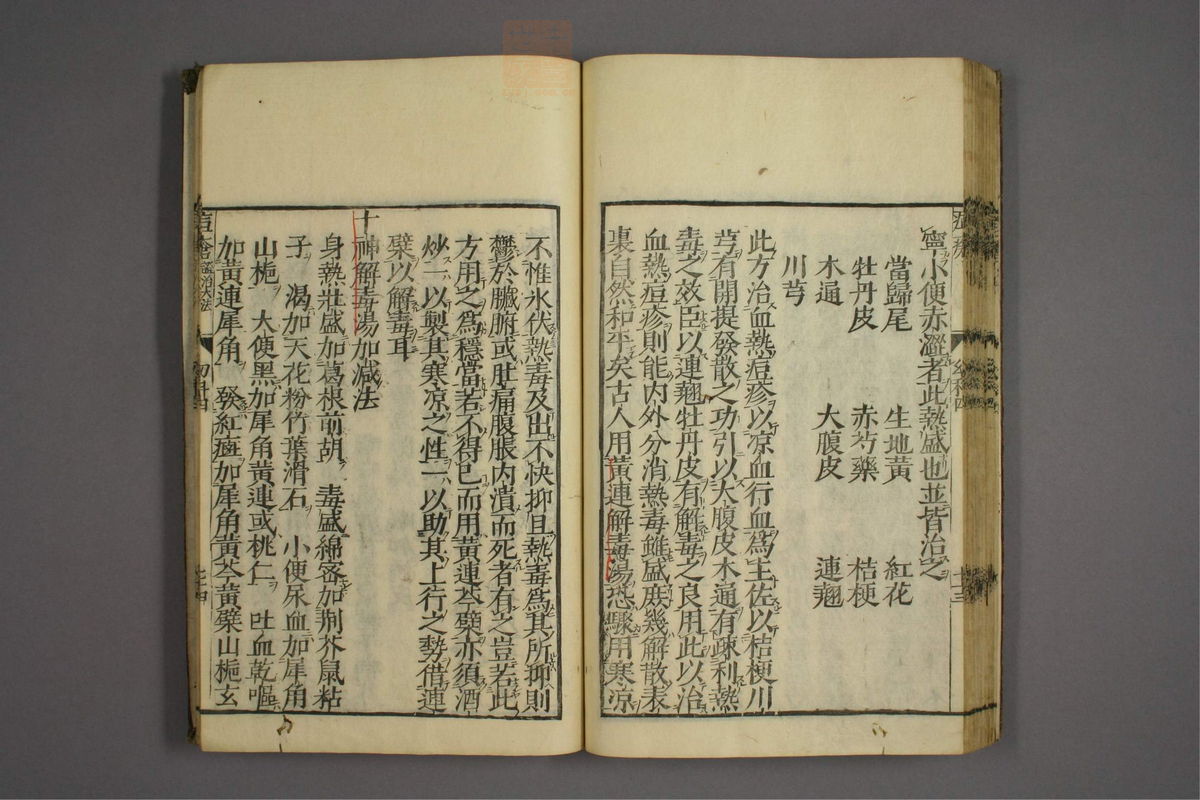 寧小便赤澀者此熱盛也並皆治之
當歸尾 生地黃 紅花
牡丹皮 赤芍藥 桔梗
木通 大腹皮 連翹
川芎
此方治血熱痘疹以凉血行血爲主佐以桔梗川
芎有開提發散之功引以大腹皮木通有疎利熱
毒之效臣以連翹牡丹皮有解毒之良用此以治
血熱痘疹則能内外分消熱毒雖盛庶幾解散表
裏自然和平矣古人用黃連解毒湯恐驟用寒凉
不惟氷伏熱毒及出不快抑且熱毒爲其所抑則
鬱於臟腑或肚痛腹脹内潰而死者有之豈若此
方用之爲穩當若不得已而用黃連芩蘗亦須酒
炒一以製其寒凉之性一以助其上行之勢借連
蘗以解毒耳
十神解毒湯加減法
身熱壯盛加葛根前胡 毒盛綿密加荆芥鼠粘
子 渴加天花粉竹葉滑石 小便尿血加犀角
山梔 大便黑加犀角黃連或桃仁 吐血乾嘔
加黃連犀角 發紅斑加犀角黃芩黃蘗山梔玄
幼科四